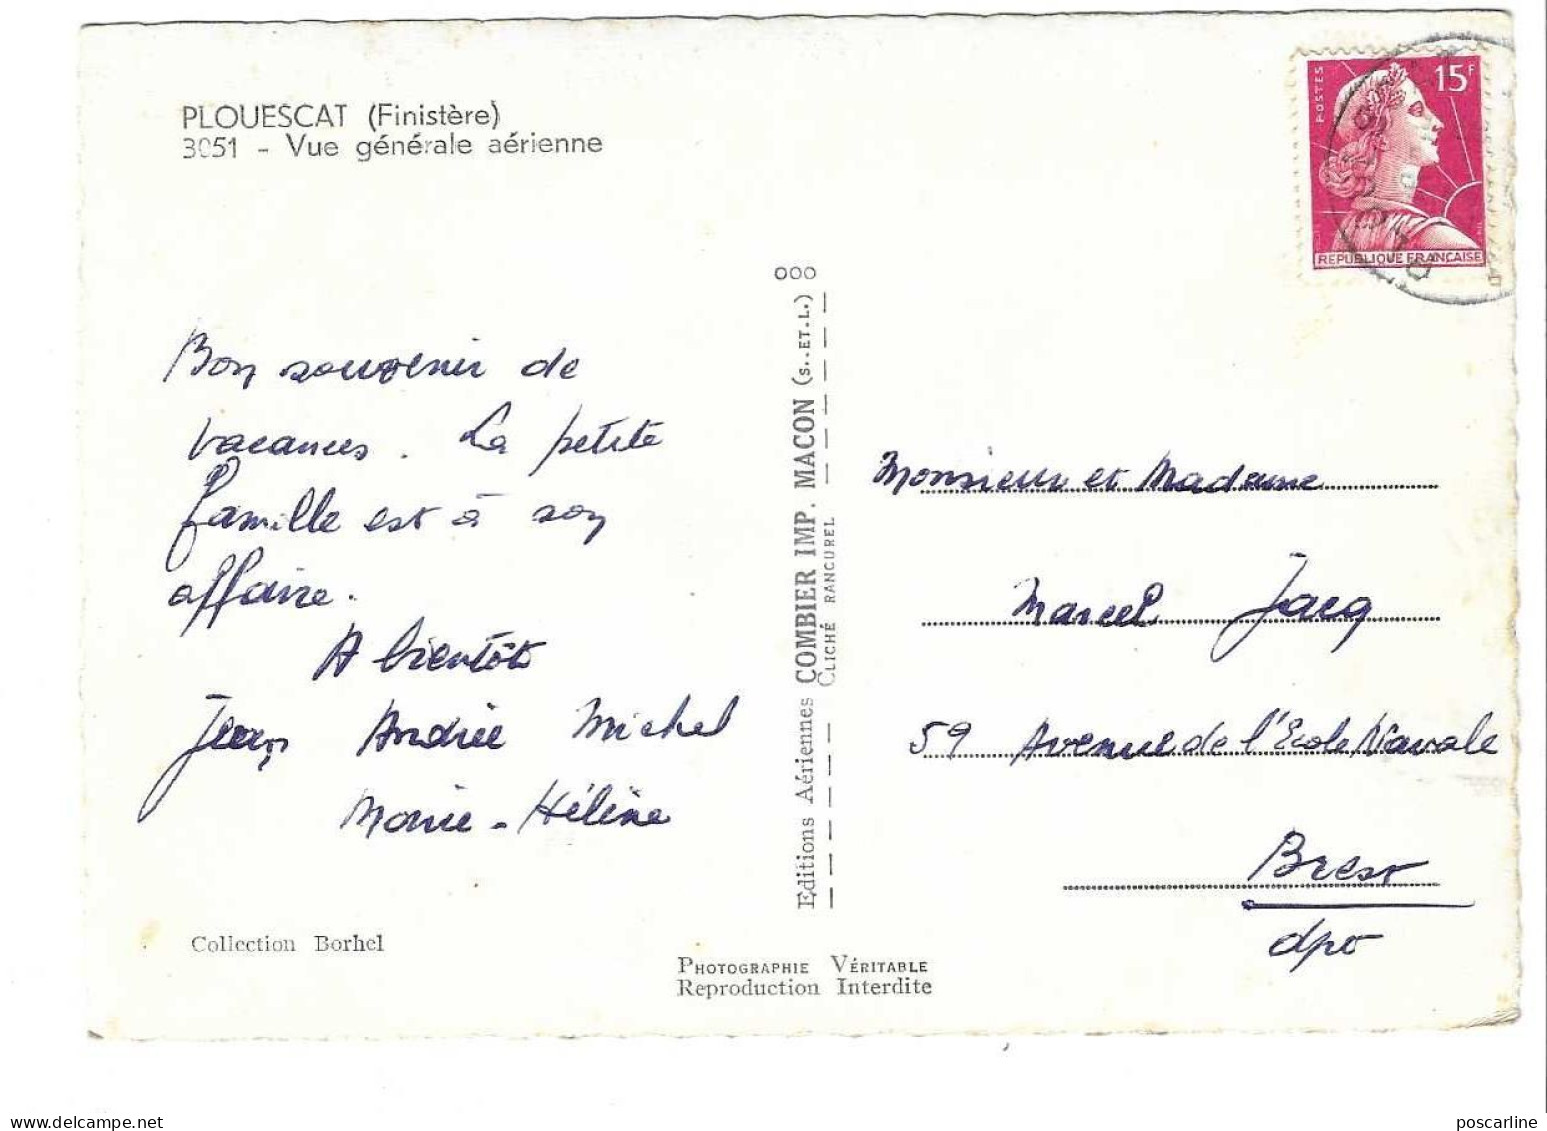 PLOUESCAT (Finistère)
3051 - Vue générale aérienne
POSTES
15F
REPUBLIQUE FRANÇAISE
Bon souvenir de
vacances. La petite
famille est à son
affaire.
A bientôt
Jean Andrée Michel
Marie-Hélène
Collection Borhel
ooo
Editions Aériennes COMBIER IMP. MACON (S.-ET-L.)
CLICHÉ RANCUREL
PHOTOGRAPHIE VÉRITABLE
Reproduction Interdite
Monsieur et Madame
Marcel Jacq
59 Avenue de l'Ecole Navale
Brest
dpo
poscarline